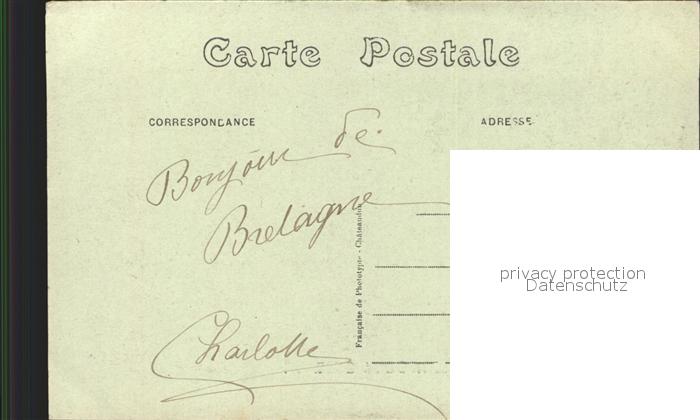 Carte Postale
CORRESPONDANCE
ADRESSE
Bonjour de
Bretagne
Française de Phototypie - Châteaudun
Charlotte
privacy protection
Datenschutz